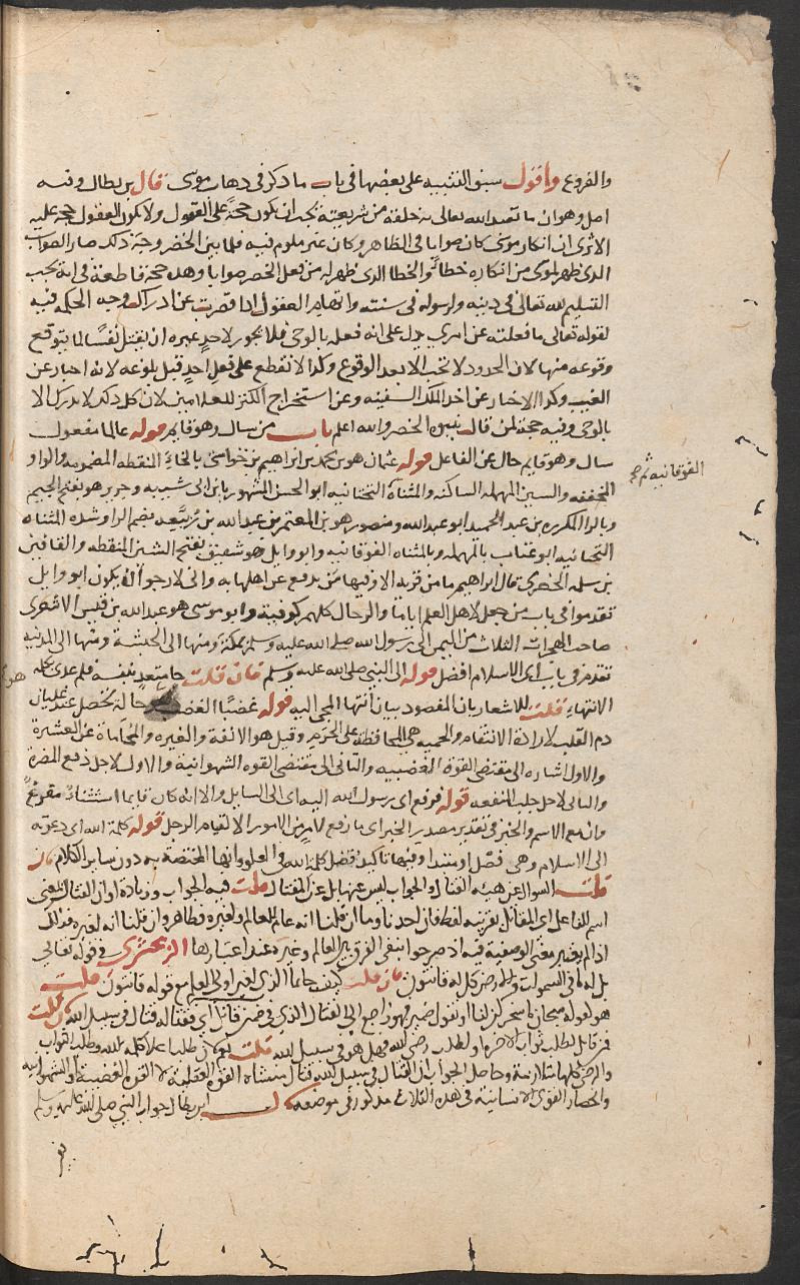 والفروع واقول سبق التنبيه على بعضها في باب ما ذكر في ذهاب موسى قال بن بطال وفيه
اصل وهو ان ما تعبد الله تعالى به خلقه من شريعته يجب ان يكون حجة على العقول ولا يكون العقول حجة عليه
الا ترى ان انكار موسى كان صوابا في الظاهر وكان غير ملوم فيه فلما بين الخضر وجه ذلك صار الصواب
الذي ظهر لموسى من انكاره خطأ والخطا الذي ظهر له من فعل الخضر صوابا وهذه حجة قاطعة في انه يجب
التسليم لله تعالى في دينه ولرسوله في سنته واتهام العقول اذا قصرت عن ادراك وجه الحكمة فيه
لقوله تعالى ما فعلته عن امري يدل على انه فعله بالوحي فلا يجوز لاحد غيره ان يقتل نفسا لما يتوقع
وقوعه منها لان الحدود لا تجب الا بعد الوقوع وكذا لا نقطع على فعل احد قبل بلوغه لانه اخبار عن
الغيب وكذا الاخبار عن اخذ الملك السفينة وعن استخراج الكنز للغلامين لان كل ذلك لا يدرك الا
بالوحي وفيه حجة لمن قال بنبوة الخضر والله اعلم باب من سال وهو قايم قوله عالما مفعول
سال وهو قايم حال عن الفاعل قوله عثمان هو بن محمد بن ابراهيم بن خواستى بالخاء النقطه المضمومه والواو
المخففه والسين المهمله الساكنه والمثناة التحتانيه ابو الحسن المشهور بابن ابى شيبه وجرير هو بفتح الجيم
الفوقانيه ثم
وبالراء المكرره بن عبد الحميد ابو عبد الله ومنصور هو بن المعتمر بن عبد الله بن ربيعه بضم الرا وشده المثناه
التحانيه ابو عتاب بالمهمله وبالمثناه الفوقانيه وابو وايل هو شقيق بفتح الشين المنقطه والقافين
بن سلمه الحضرمي قال ابراهيم ما من قرية الا وفيها من يدفع عن اهلها به واني لارجو ان يكون ابو وايل
تقدموا في باب من جعل لاهل العلم اياما والرجال كلهم كوفية وابو موسى هو عبد الله بن قيس الاشعري
صاحب الهجرات الثلاث من اليمن الى رسول الله صلى الله عليه وسلم بمكة ومنها الى الحبشة ومنها الى المدينة
تقدم في باب اى الاسلام افضل قوله الى النبي صلى الله عليه وسلم فان قلت جا متعد بنفسه فلم عدى بكلمه
الانتهاء قلت للاشعار بان المقصود بيان انتها المجى اليه قوله غضبا الغضب حالة تحصل عند غليان
دم القلب لارادة الانتقام والحميه هي المحافظة على الحرم وقيل هو الانفة والغيره والمحاماة عن العشيرة
والاول اشاره الى مقتضى القوة الغضبيه والثاني الى مقتضى القوه الشهوانية والاول لاجل دفع المضرة
والثاني لاجل جلب المنفعه قوله فرفع اى رسول الله اليه اى الى السايل والا انه كان قايما استثناء مفرغ
وان مع الاسم والخبر في تقدير مصدر الخبر اى ما رفع لامر من الامور الا لقيام الرجل قوله كلمة الله اى دعوته
الى الاسلام وهي فصل او مبتدا وفيها تاكيد فضل كلمة الله في العلو وانها المختصة به دون ساير الكلام فان
قلت السوال عن ماهية القتال والجواب ليس عنها بل عن المقاتل قلت فيه الجواب وزيادة او ان القتال بمعنى
اسم الفاعل اى المقاتل بقرينه لفظ فان احدنا وما ان قلنا انه عام للعالم ولغيره فظاهر وان قلنا انه لغيره فكذلك
اذا لم يعتبر معنى الوصفية فيه اذ صرحوا بنفى الفرق بين العالم وغيره عند اعتبارها الزمخشري في قوله تعالى
بل له ما في السموات والارض كل له قانتون فان قلت كيف جا بما الذي لغير اولي العلم مع قوله قانتون قلت
هو لقوله سبحان ما سخركن لنا او نقول ضمير فهو راجع الى القتال الذي في ضمن قاتل اى فقتاله قتال في سبيل الله فان قلت
فمن قاتل لطلب ثواب الاخرة او لطلب رضى الله فهل هو في سبيل الله قلت نعم لان طلب اعلاء كلمة الله وطلب الثواب
والرضى كلها متلازمة وحاصل الجواب ان القتال في سبيل الله قتال منشاه القوة العقلية لا القوة الغضبية او الشهوانيه
وانحصار القوى الانسانية في هذه الثلاث مذكور في موضعه قال ابن بطال جواب النبي صلى الله عليه وسلم